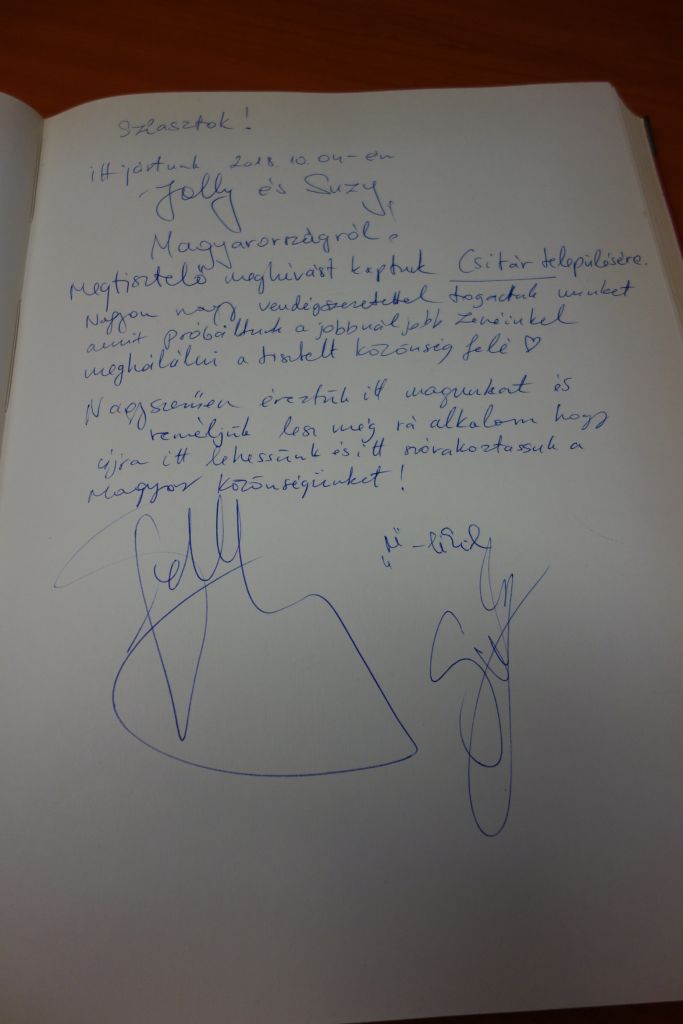 Sziasztok!
itt jártunk 2018.10.04-én
Jolly és Suzy,
Magyarországról.
Megtisztelő meghívást kaptunk Csitár településére.
Nagyon nagy vendégszeretettel fogadtak minket
amit próbáltunk a jobbnál jobb zenéinkel
meghálálni a tisztelt közönség felé ♡
Nagyszerűen éreztük itt magunkat és
reméljük lesz még rá alkalom hogy
újra itt lehessünk és itt szórakoztassuk a
Magyar közönségünket!
Jolly
Suzy